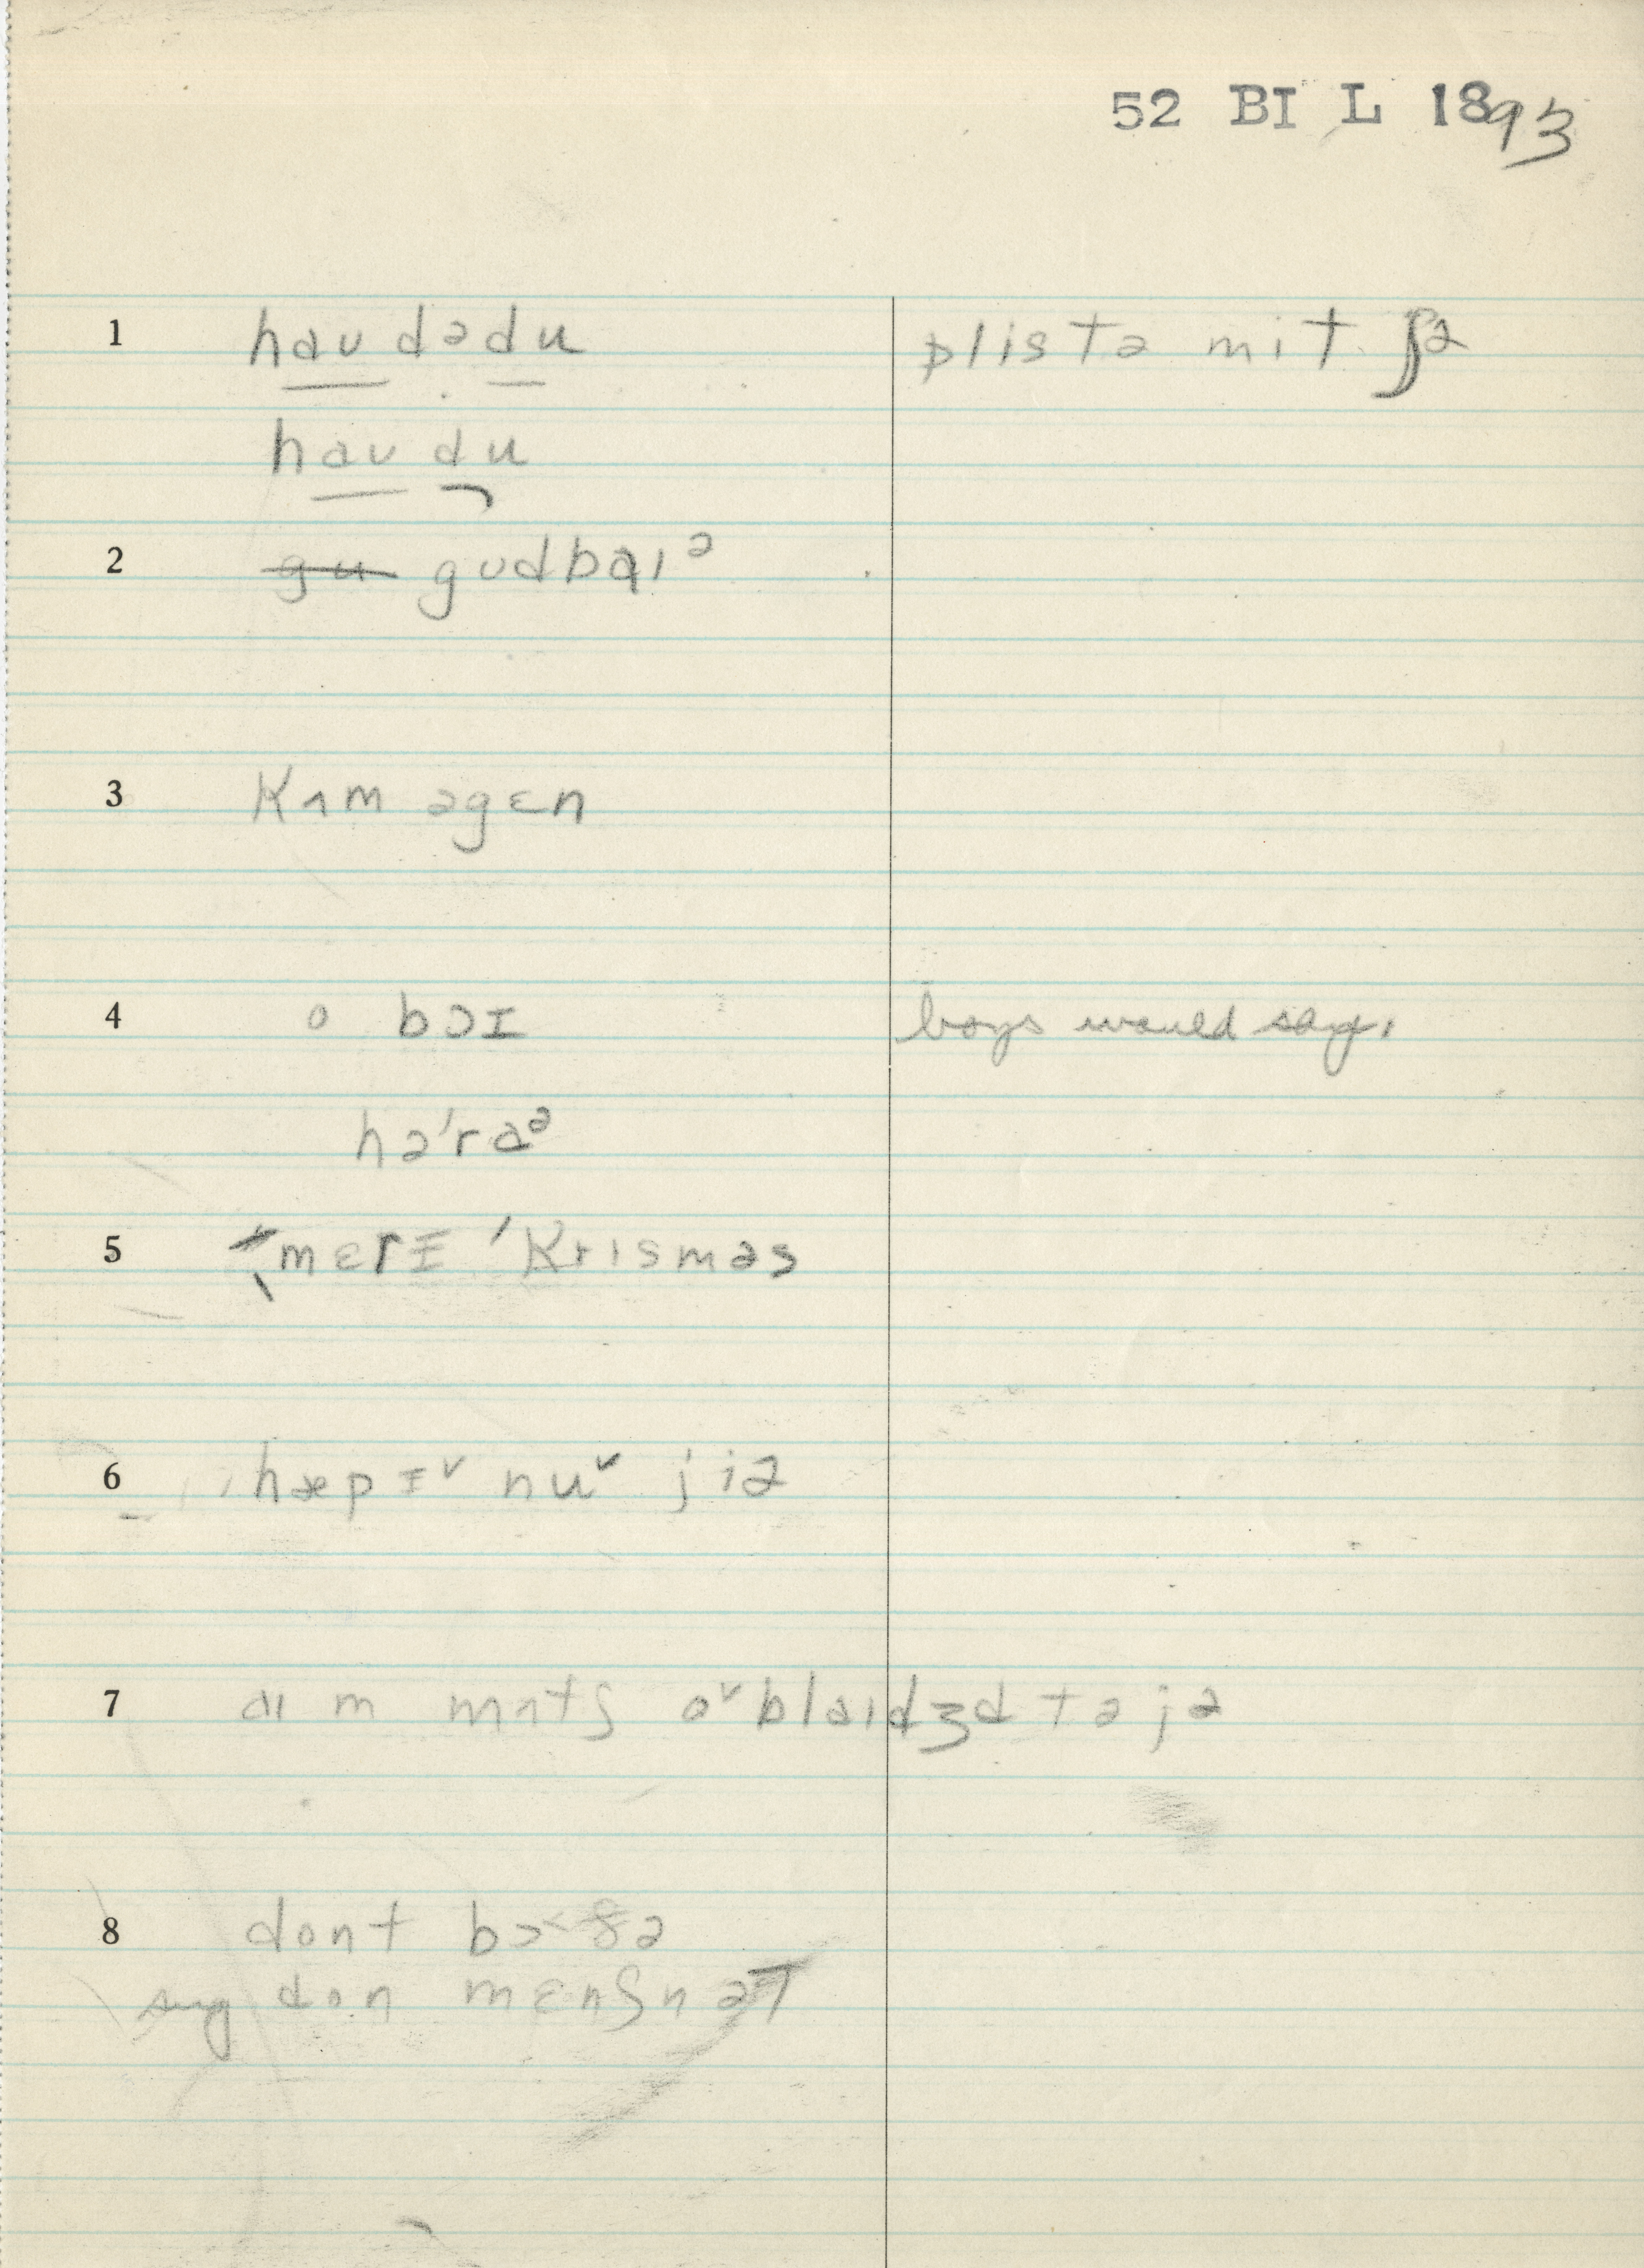 52 BI L 1893
1 haʊ dədu plistə mit jə
haʊ du
2 gu gʊdbaɪᵊ
3 Kʌm əgɛn
4 o bɔɪ boys would say,
hə'raᵊ
5 mɛrɪ 'Krısməs
6 hæpɪ˅ nu˅ jiə
7 aɪ m mʌtʃ o˅blaɪdʒd tə jə
8 dont bɔ< ðə
sug don mɛnʃn əT